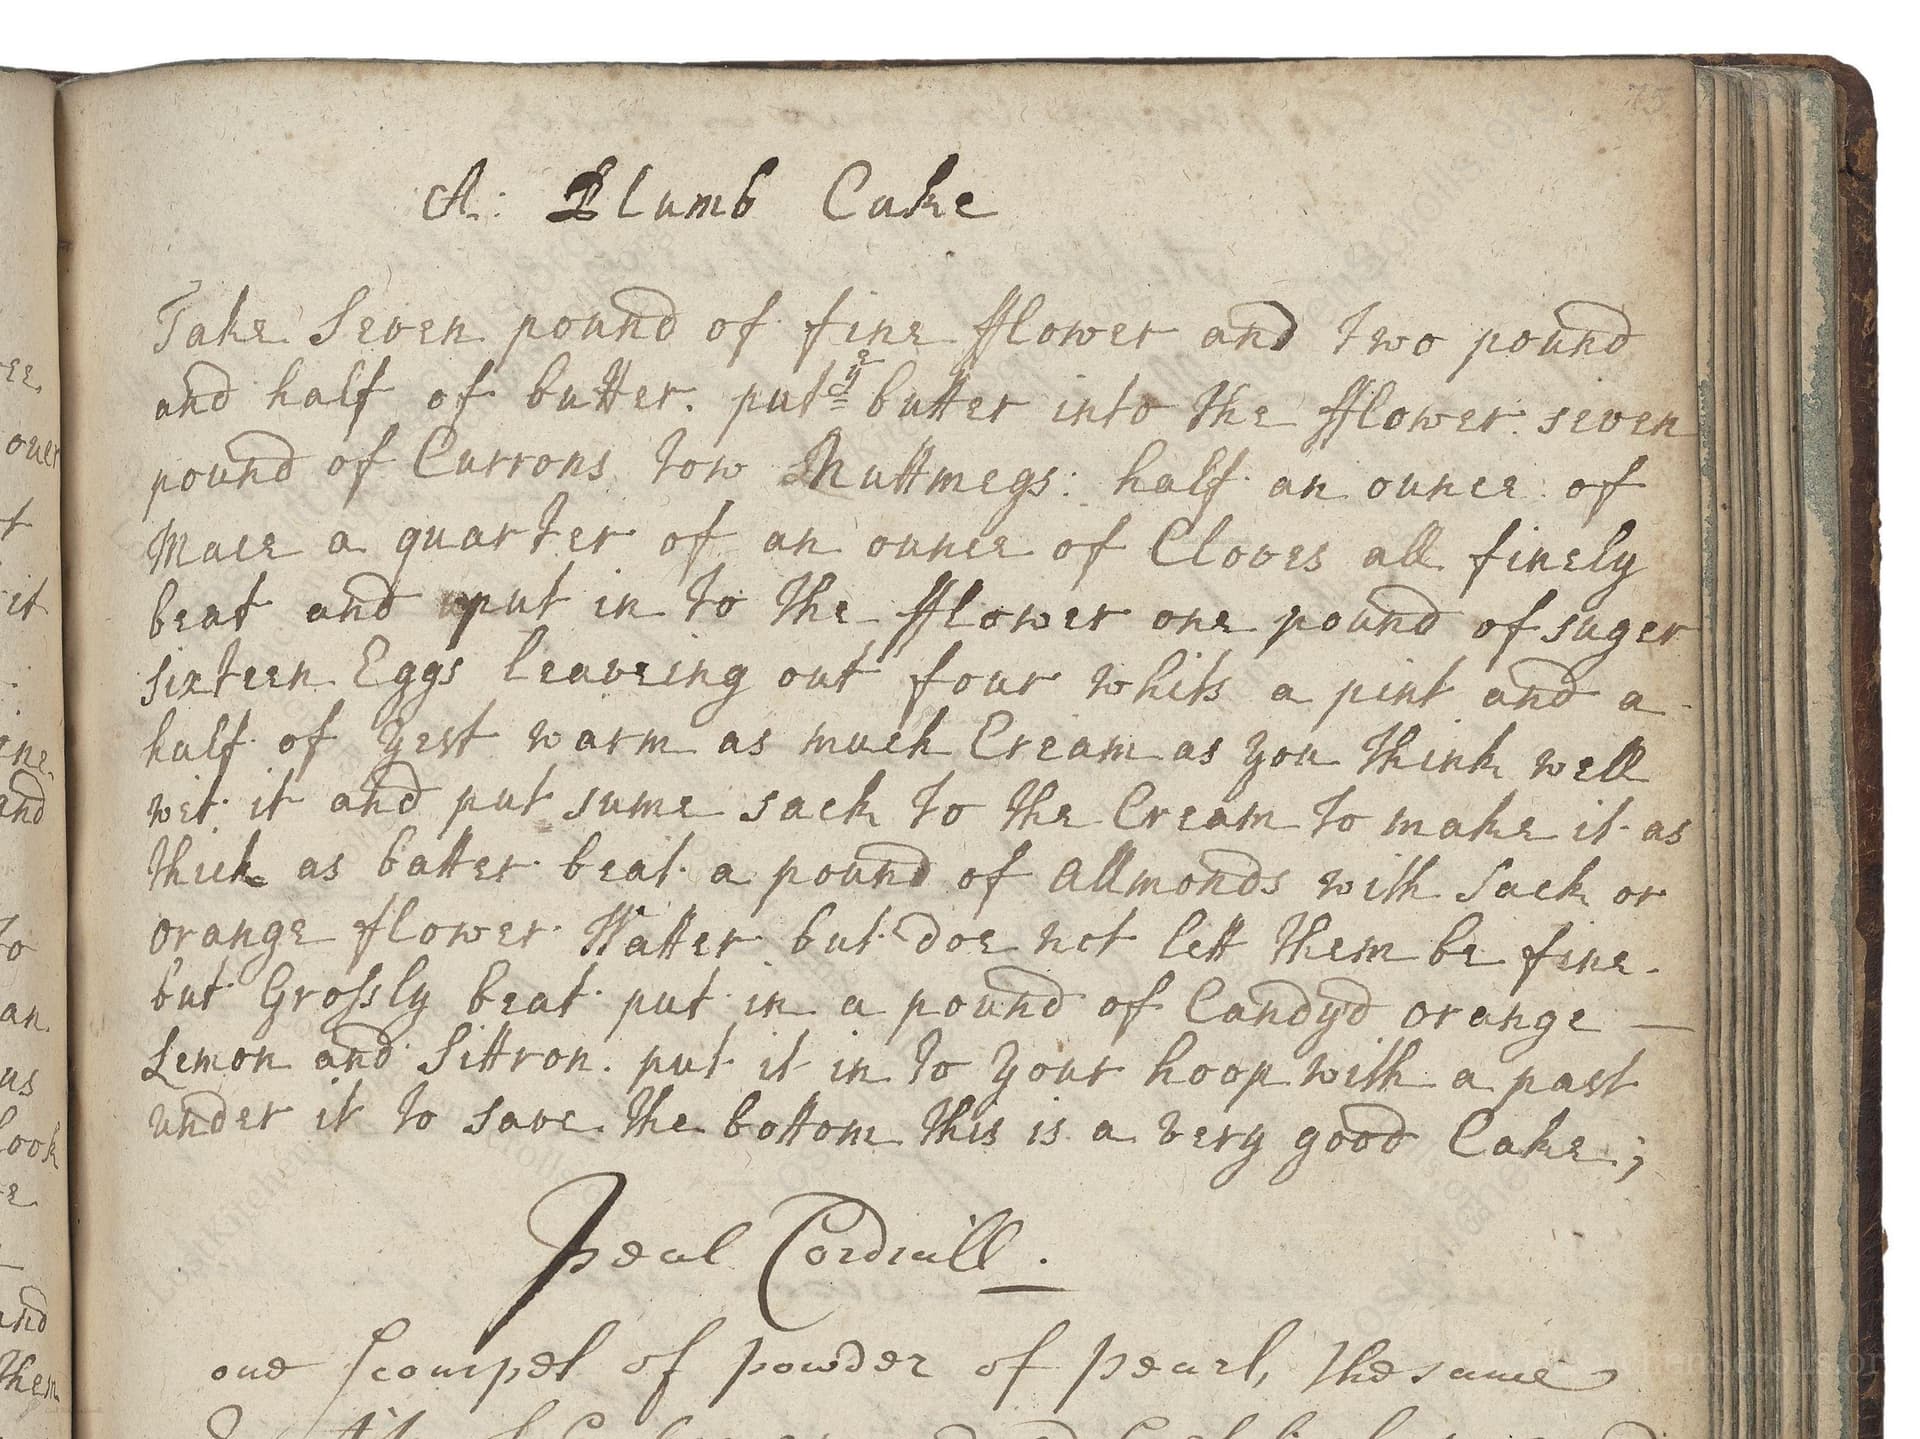 75
A: Plumb Cake
Take Seven pound of fine fflower and two pound
and half of butter. put yᵉ butter into the fflower seven
pound of Currons tow Nuttmegs: half an ounce of
Mace a quarter of an ounce of Cloves all finely
beat and put in to the fflower one pound of suger
sixteen Eggs leaveing out four whits a pint and a
half of yest warm as much Cream as you think well
wet it and put sume sack to the Cream to make it as
thick as batter beat a pound of allmonds with Sack or
orange flower Watter but doe not lett them be fine
but Grossly beat put in a pound of Candyd orange —
Lemon and Sittron. put it in to your hoop with a past
under it to save the bottom this is a very good Cake;
Peal Cordiall.
one scourpel of powder of pearl, the same